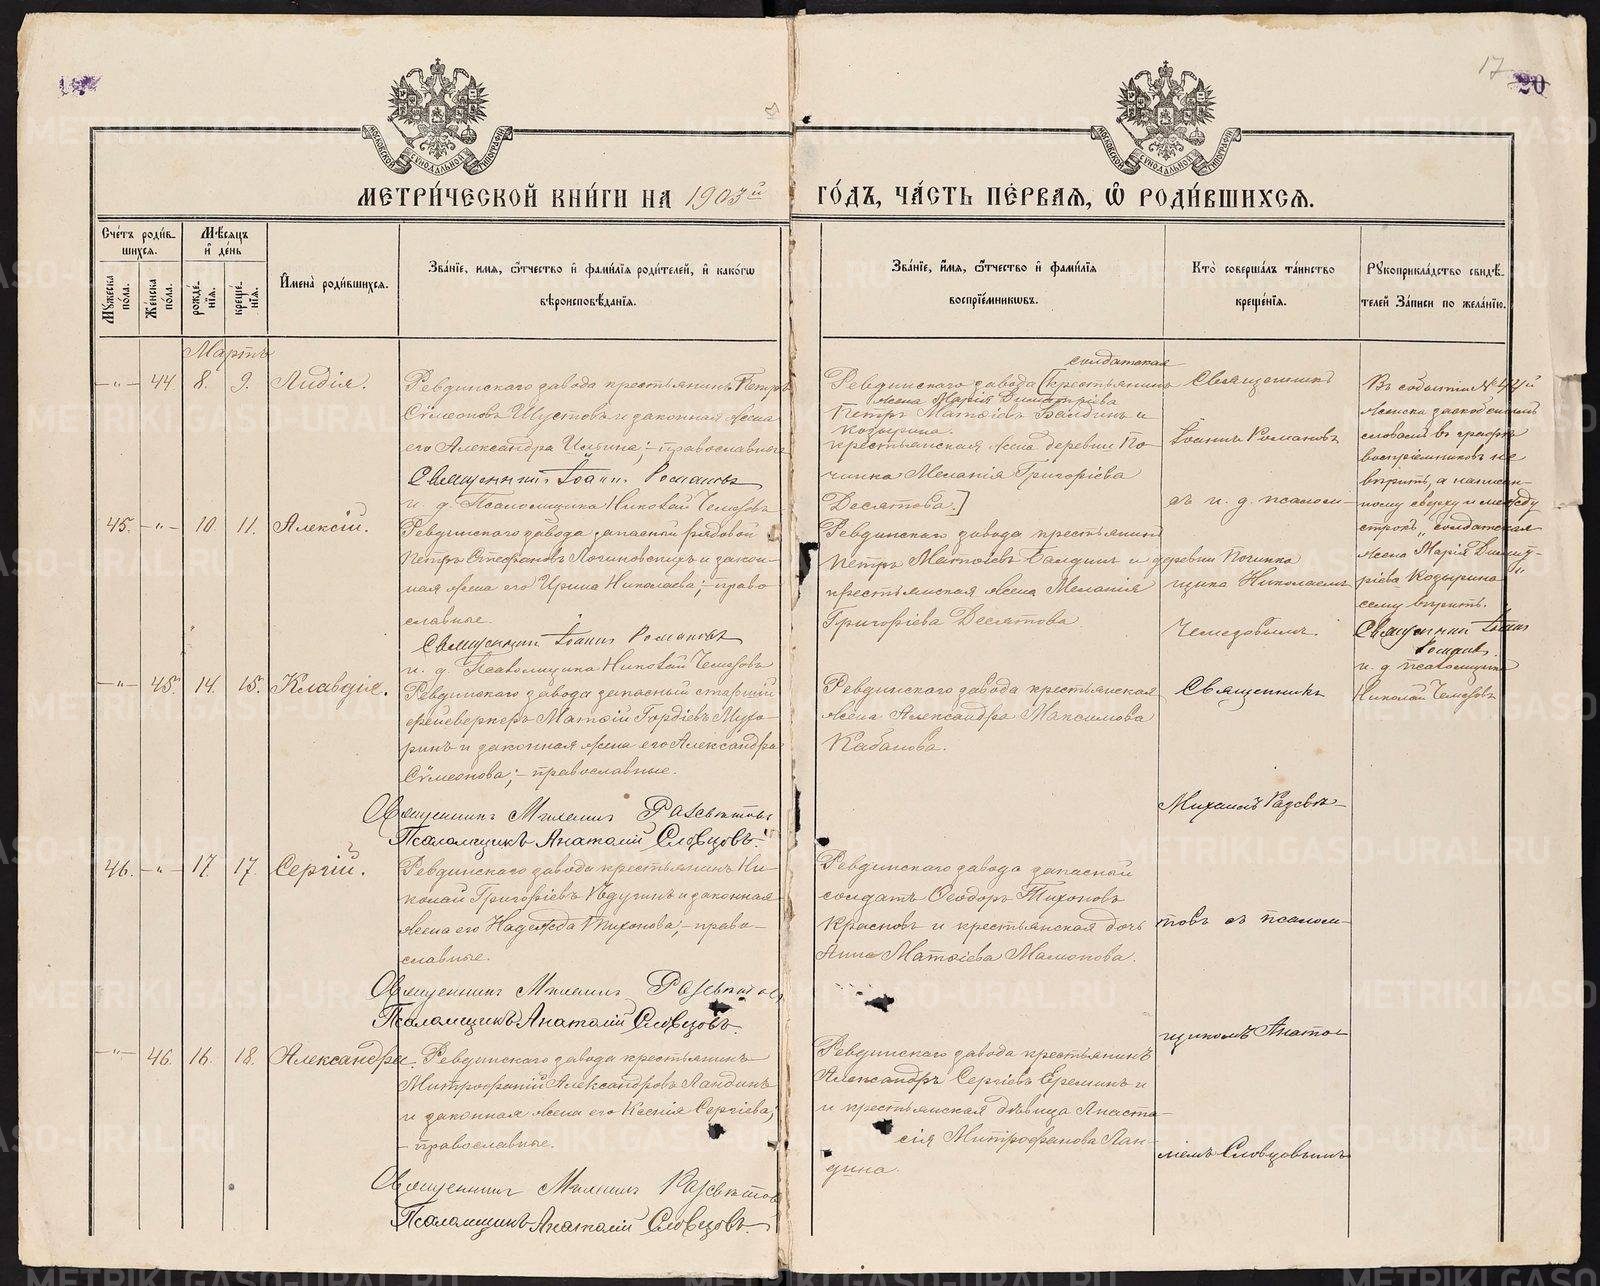 17
20
МОСКОВСКОЙ СѴНОДАЛЬНОЙ ТИПОГРАФІИ
МОСКОВСКОЙ СѴНОДАЛЬНОЙ ТИПОГРАФІИ
МЕТРИ́ЧЕСКОЙ КНИ́ГИ НА 1903й
ГО́ДЪ, ЧА́СТЬ ПЕ́РВАѦ, Ѽ РОДИ́ВШИХСѦ.
Сче́тъ роди́в-
шихсѧ.
Мѣ́сѧцъ
и҆ де́нь
Мꙋ́жеска
по́ла.
Же́нска
по́ла.
рожде́-
нїѧ.
креще́-
нїѧ.
И҆мена̀ роди́вшихсѧ.
Зва́нїе, и҆мѧ, ѻ҆́тчество и҆ фами́лїѧ роди́телей, и҆ како́гѡ
вѣроисповѣ́данїѧ.
Зва́нїе, и҆́мѧ, ѻ҆́тчество и҆ фами́лїѧ
воспрїе́мникѡвъ.
Кто̀ соверша́лъ та́инство
креще́нїѧ.
Рꙋкоприкла́дство свидѣ́-
телей За́писи по жела́нїю.
Мартъ
-"- 44. 8. 9. Лидія.
Ревдинскаго завода крестьянинъ Петръ
Сѵмеоновъ Шустовъ и законная жена
его Александра Ильина; - православные
Священникъ Іоаннъ Романовъ
и. д. Псаломщика Николай Чемезовъ
солдатская
Ревдинскаго завода [крестьянинъ
жена Марія Димитріева
Петръ Матѳіевъ Балдинъ и
Козырина.
крестьянская жена деревни По-
чинка Меланія Григоріева
Десятова.]
Священникъ
Іоаннъ Романовъ
съ и. д. псалом-
щика Николаемъ
Чемезовымъ.
Въ событіи № 44й
женска зачеркнутымъ
словамъ въ графѣ
воспріемниковъ не
вѣрить, а написан-
ному сверху и между
строкъ „солдатская
жена Марія Димит-
ріева Козырина"
сему вѣрить.
Священникъ Іоаннъ
Романовъ.
и. д. псаломщика
Николай Чемезовъ
45. -"- 10. 11. Алексій.
Ревдинскаго завода запасной рядовой
Петръ Стефановъ Логиновскихъ и закон-
ная жена его Ирина Николаева; - право-
славные.
Священникъ Іоаннъ Романовъ
и. д. Псаломщика Николай Чемезовъ
Ревдинскаго завода крестьянинъ
Петръ Матѳіевъ Балдинъ и деревни Починка
крестьянская жена Меланія
Григоріева Десятова.
-"- 45. 14. 15. Клавдія.
Ревдинскаго завода запасный старшій
фейерверкеръ Матѳій Гордіевъ Мухо-
ринъ и законная жена его Александра
Сѵмеонова; - православные.
Священникъ Михаилъ Разсвѣтовъ
Псаломщикъ Анатолій Словцовъ.
Ревдинскаго завода крестьянская
жена Александра Максимова
Кабанова.
Священникъ
Михаилъ Разсвѣ-
товъ съ псалом-
щикомъ Анато-
ліемъ Словцовымъ
46. -"- 17. 17. Сергій.
Ревдинскаго завода крестьянинъ Ни-
колай Григоріевъ и законная
жена его Надежда Тихонова; - право-
славные.
Священникъ Михаилъ Разсвѣтовъ
Псаломщикъ Анатолій Словцовъ.
Ревдинскаго завода запасный
солдатъ Ѳеодоръ Тихоновъ
Красновъ и крестьянская дочь
Анна Матѳіева Мамонова.
-"- 46. 16. 18. Александра.
Ревдинскаго завода крестьянинъ
Митрофаній Александровъ Ландинъ
и законная жена его Ксенія Сергіева;
- православные.
Священникъ Михаилъ Разсвѣтовъ
Псаломщикъ Анатолій Словцовъ.
Ревдинскаго завода крестьянинъ
Александръ Сергіевъ Ереминъ и
и крестьянская дѣвица Анаста-
сія Митрофанова Лан-
дина.
METRIKI.GASO-URAL.RU